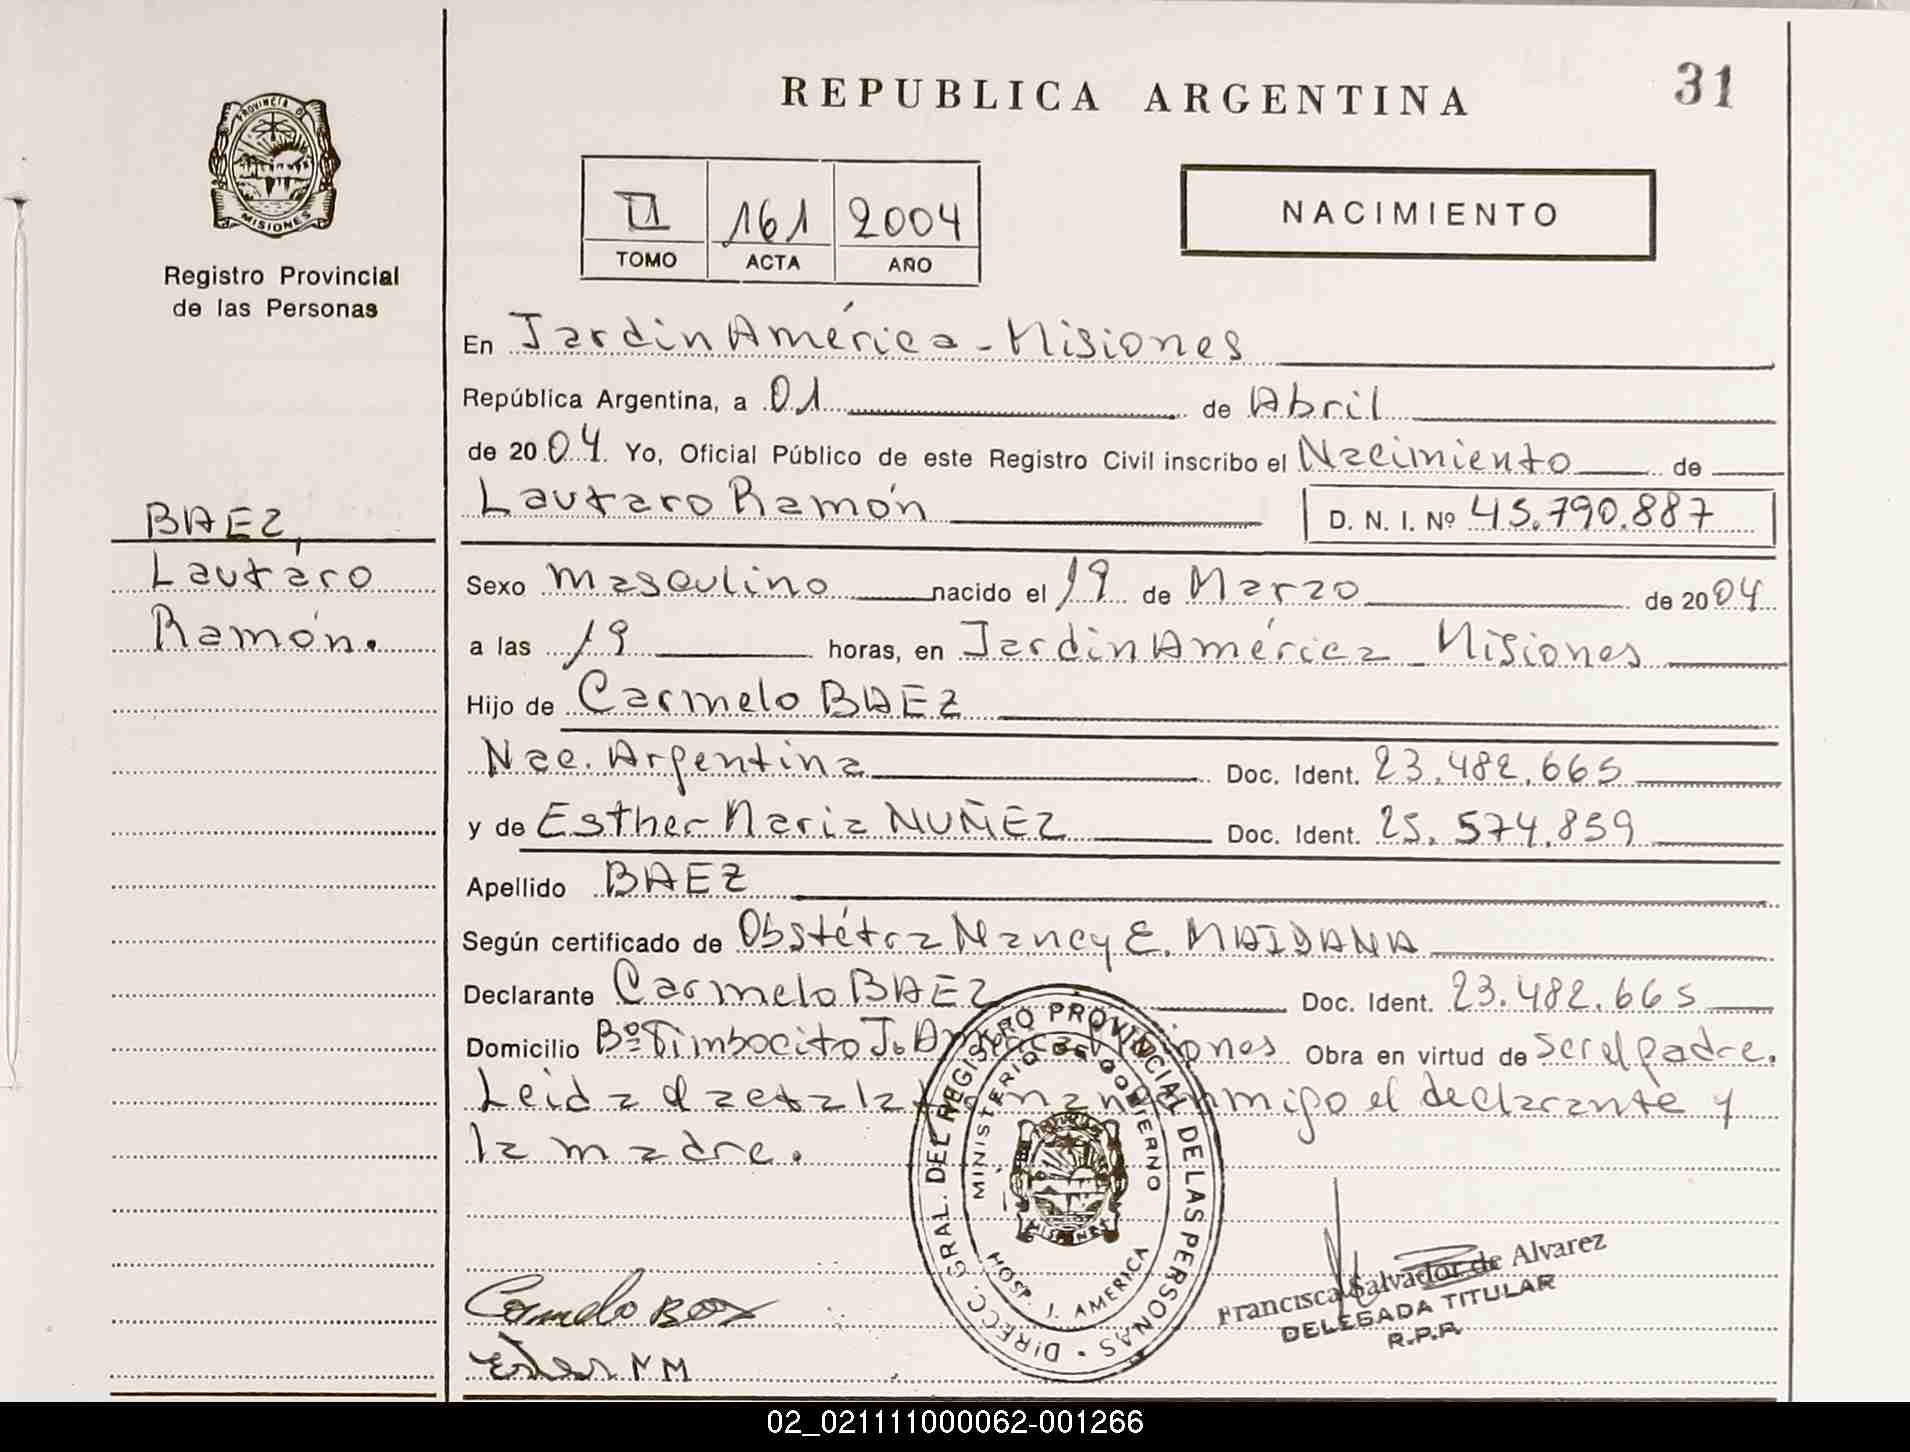 REPUBLICA ARGENTINA
31
PROVINCIA DE
MISIONES
Registro Provincial
de las Personas
II 161 2004
TOMO ACTA AÑO
NACIMIENTO
En Jardin América - Misiones
República Argentina, a 01 de Abril
de 2004 Yo, Oficial Público de este Registro Civil inscribo el Nacimiento de
Lautaro Ramón D. N. I. Nº 45.790.887
BAEZ,
Lautaro
Ramón.
Sexo masculino nacido el 19 de Marzo de 2004
a las 19 horas, en Jardin América Misiones
Hijo de Carmelo BAEZ
Nac. Argentina Doc. Ident. 23.482.665
y de Esther Maria NUÑEZ Doc. Ident. 25.574.859
Apellido BAEZ
Según certificado de Obstétra Nancy E. MAIDANA
Declarante Carmelo BAEZ Doc. Ident. 23.482.665
Domicilio Bº Timbocito J. América Misiones Obra en virtud de ser el padre.
Leida el acta la firman conmigo el declarante y
la madre.
DIRECC. GRAL. DEL REGISTRO PROVINCIAL DE LAS PERSONAS
MINISTERIO DE GOBIERNO
MISIONES
HOSP. J. AMERICA
Carmelo BAEZ
Francisca Salvador de Alvarez
DELEGADA TITULAR
R.P.P.
02_021111000062-001266